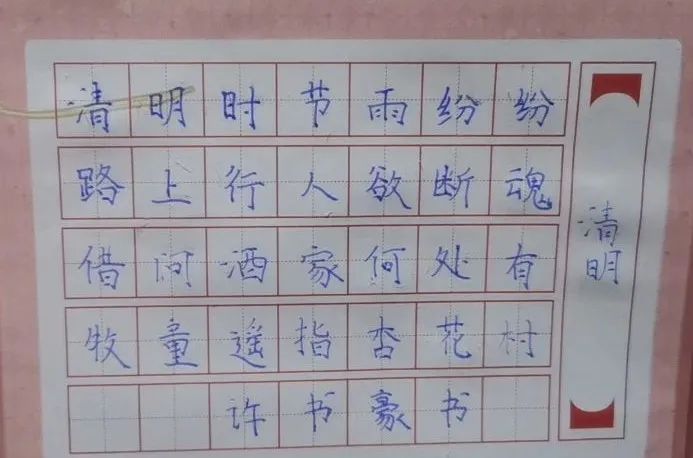 清明时节雨纷纷
路上行人欲断魂
借问酒家何处有
牧童遥指杏花村
许书豪书
清明